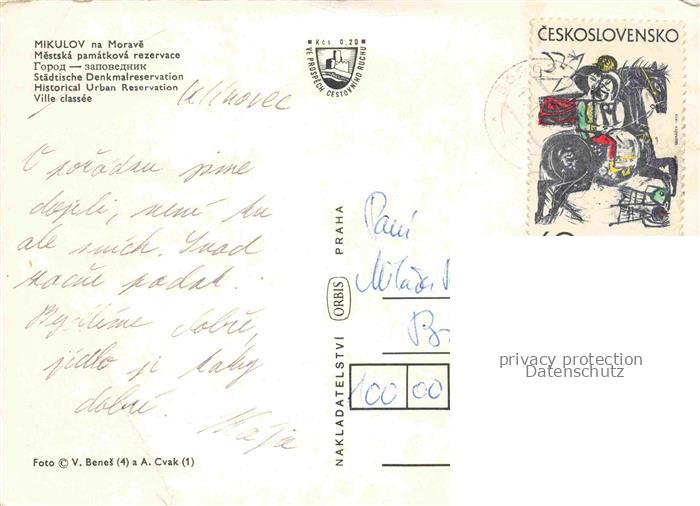 MIKULOV na Moravě
Městská památková rezervace
Город — заповедник
Städtische Denkmalreservation
Historical Urban Reservation
Ville classée
Kčs 0,20
VE PROSPĚCH CESTOVNÍHO RUCHU
ČESKOSLOVENSKO
60
Klínovec
V pořádku jsme
dojeli, není tu
ale sních. Snad
začne padat.
Bydlíme dobře,
jídlo je taky
dobré.
Kája
Paní
Br
100 00
NAKLADATELSTVÍ ORBIS PRAHA
privacy protection
Datenschutz
Foto © V. Beneš (4) a A. Cvak (1)